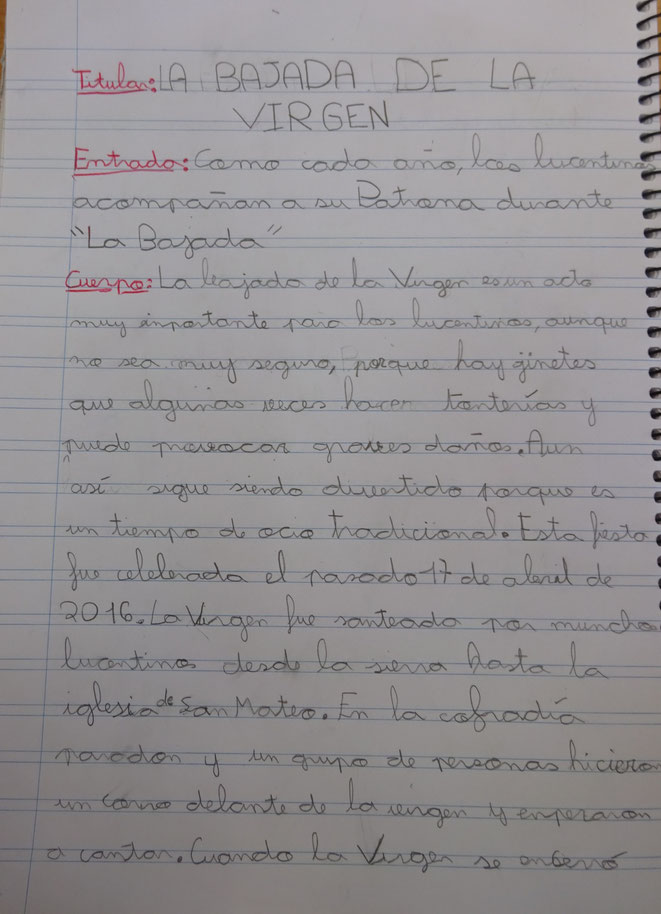 Titular: LA BAJADA DE LA
VIRGEN
Entrada: Como cada año, los lucentinos
acompañan a su Patrona durante
"La Bajada"
Cuerpo: La bajada de la Virgen es un acto
muy inportante para los lucentinos, aunque
no sea muy seguro, porque hay ginetes
que algunas veces hacen tonterías y
puede provocar graves daños. Aun
así sigue siendo divertido porque es
un tiempo de ocio tradicional. Esta fiesta
fue celebrada el pasado 17 de abril de
2016. La Virgen fue santeada por munchos
lucentinos desde la sierra hasta la
iglesia de San Mateo. En la cofradía
paradon y un grupo de personas hicieron
un corro delante de la vingen y enperaron
a cantar. Cuando la Virgen se encerró